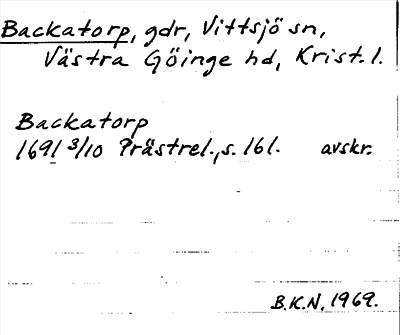 Backatorp, gdr, Vittsjö sn,
Västra Göinge hd, Krist. l.
Backatorp
1691 3/10 Prästrel., s. 161. avskr.
B.K.N. 1969.